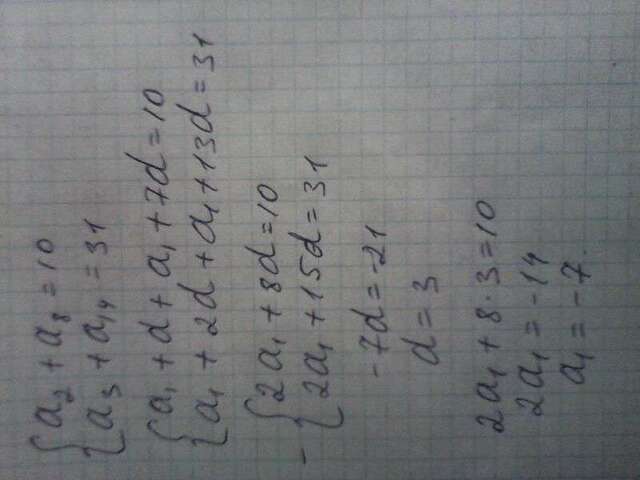 {a₂ + a₈ = 10
{a₃ + a₁₄ = 31
{a₁ + d + a₁ + 7d = 10
{a₁ + 2d + a₁ + 13d = 31
- {2a₁ + 8d = 10
{2a₁ + 15d = 31
-7d = -21
d = 3
2a₁ + 8 · 3 = 10
2a₁ = -14
a₁ = -7